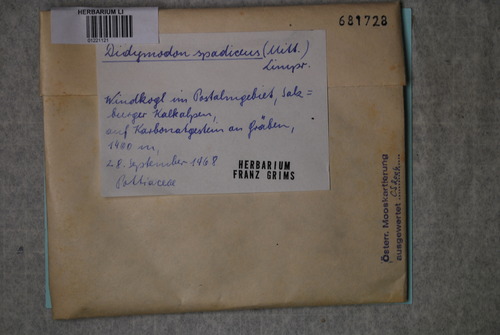 HERBARIUM LI
681728
Didymodon spadiceus (Mitt.)
Limpr.
Windkogl im Postalmgebiet, Salz=
burger Kalkalpen,
auf Karbonatgestein an Gräben,
m,
28. September 1968
Pottiaceae
HERBARIUM
FRANZ GRIMS
Österr. Mooskartierung
ausgewertet